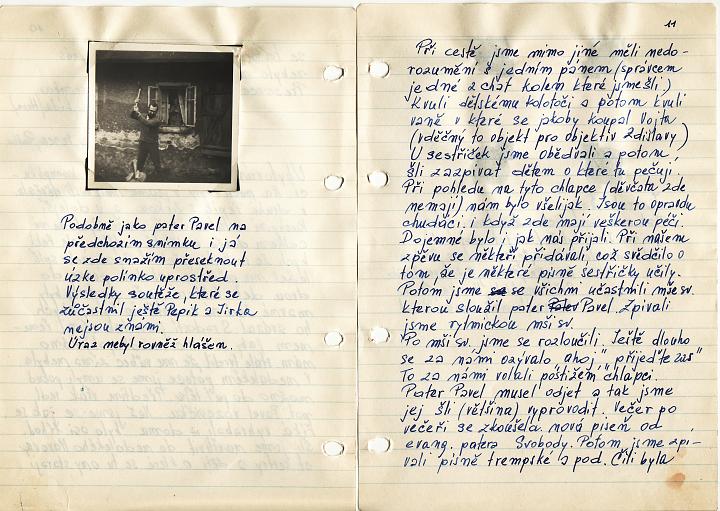 Podobně jako pater Pavel na
předchozím snímku i já
se zde snažím přeseknout
úzké polínko uprostřed.
Výsledky soutěže, které se
zúčastnil ještě Pepík a Jirka
nejsou známi.
Úraz nebyl rovněž hlášen.
11
Při cestě jsme mimo jiné měli nedo-
rozumění s jedním pánem (správcem
jedné z chat kolem které jsme šli)
Kvůli dětskému kolotoči a potom kvůli
vaně v které se jakoby koupal Vojta
(vděčný to objekt pro objektiv Zdislavy)
U sestřiček jsme obědvali a potom
šli zazpívat dětem o které tu pečují.
Při pohledu na tyto chlapce (děvčata zde
nemají) nám bylo všelijak. Jsou to opravdu
chudáci i když zde mají veškerou péči.
Dojemné bylo i jak nás přijali. Při našem
zpěvu se někteří přidávali, což svědčilo o
tom, že je některé písně sestřičky učily.
Potom jsme se všichni účastnili mše sv.
kterou sloužil pater Pavel. Zpívali
jsme rytmickou mši sv.
Po mši sv. jsme se rozloučili. Ještě dlouho
se za námi ozývalo „ahoj" „přijeďte zas"
To za námi volali postižení chlapci.
Pater Pavel musel odjet a tak jsme
jej šli (většina) vyprovodit. Večer po
večeři se zkoušela nová píseň od
evang. patera Svobody. Potom jsme zpí-
vali písně trempské a pod. Čili byla